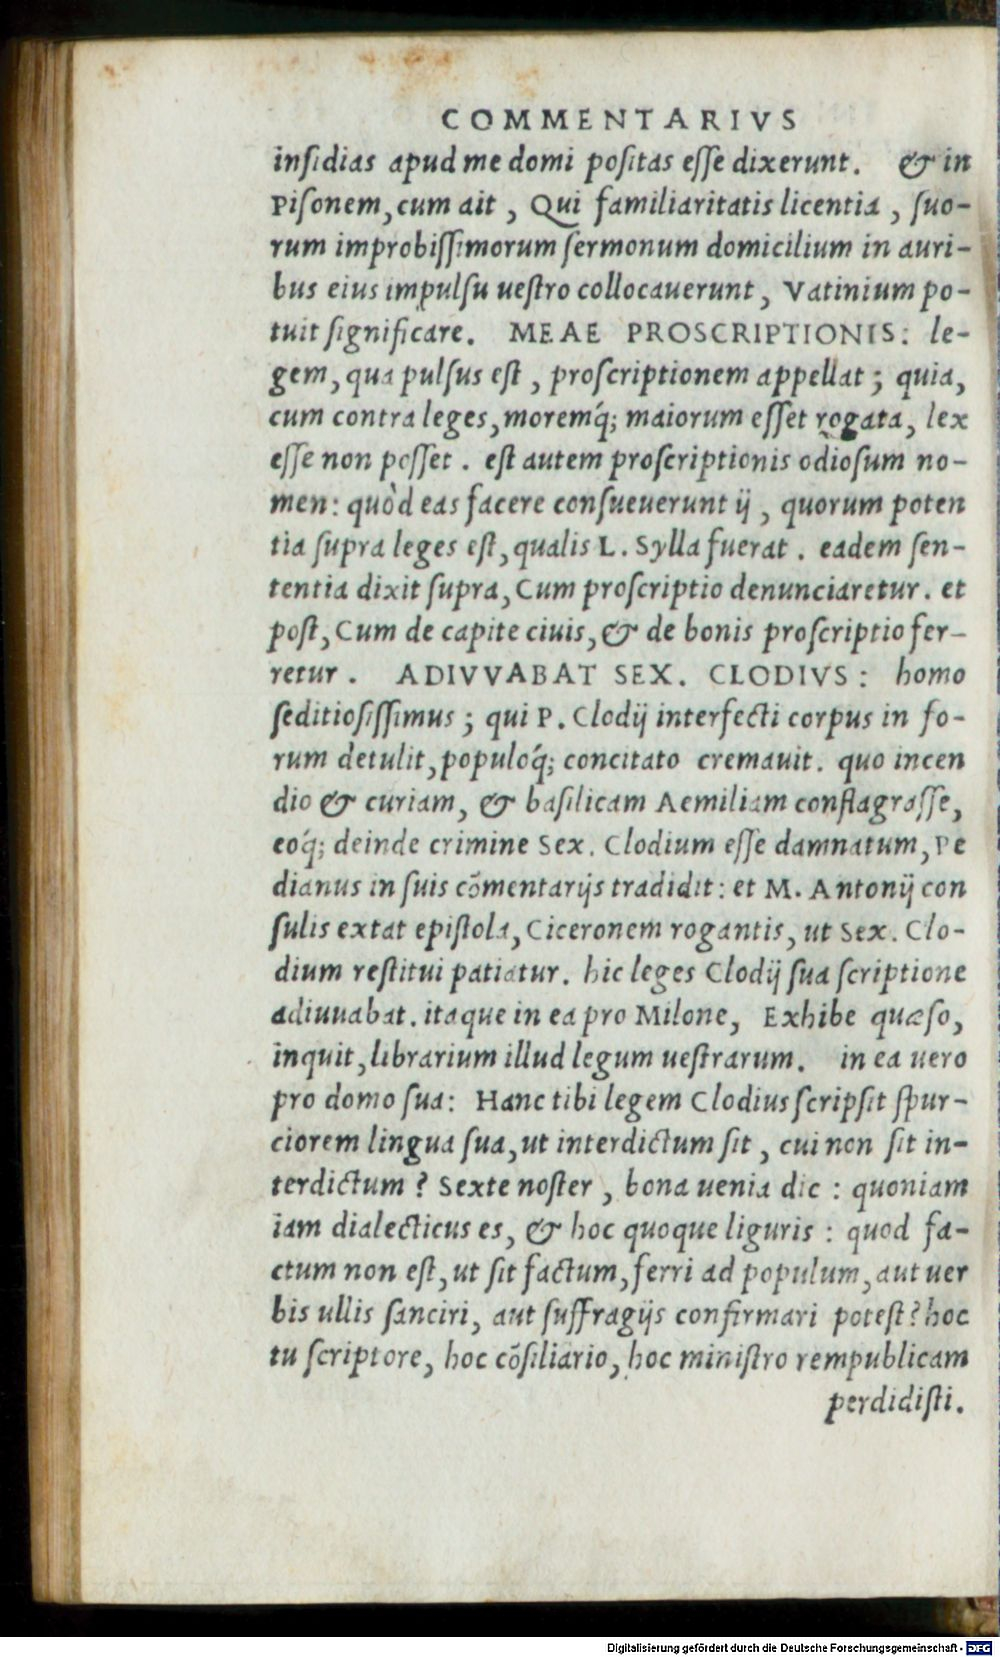 COMMENTARIVS
insidias apud me domi positas esse dixerunt. & in
Pisonem, cum ait, Qui familiaritatis licentia, suo-
rum improbissimorum sermonum domicilium in auri-
bus eius impulsu uestro collocauerunt, Vatinium po-
tuit significare. MEAE PROSCRIPTIONIS: le-
gem, qua pulsus est, proscriptionem appellat; quia,
cum contra leges, moremq́; maiorum esset rogata, lex
esse non posset. est autem proscriptionis odiosum no-
men: quòd eas facere consueuerunt ij, quorum poten
tia supra leges est, qualis L. Sylla fuerat. eadem sen-
tentia dixit supra, Cum proscriptio denunciaretur. et
post, Cum de capite ciuis, & de bonis proscriptio fer-
retur. ADIVVABAT SEX. CLODIVS: homo
seditiosissimus; qui P. Clodij interfecti corpus in fo-
rum detulit, populoq́; concitato cremauit. quo incen
dio & curiam, & basilicam Aemiliam conflagrasse,
eoq́; deinde crimine Sex. Clodium esse damnatum, Pe
dianus in suis cōmentarijs tradidit: et M. Antonij con
sulis extat epistola, Ciceronem rogantis, ut Sex. Clo-
dium restitui patiatur. hic leges Clodij sua scriptione
adiuuabat. itaque in ea pro Milone, Exhibe quæso,
inquit, librarium illud legum uestrarum. in ea uero
pro domo sua: Hanc tibi legem Clodius scripsit spur-
ciorem lingua sua, ut interdictum sit, cui non sit in-
terdictum? Sexte noster, bona uenia dic: quoniam
iam dialecticus es, & hoc quoque liguris: quod fa-
ctum non est, ut sit factum, ferri ad populum, aut uer
bis ullis sanciri, aut suffragijs confirmari potest? hoc
tu scriptore, hoc cōsiliario, hoc ministro rempublicam
perdidisti.
Digitalisierung gefördert durch die Deutsche Forschungsgemeinschaft - DFG